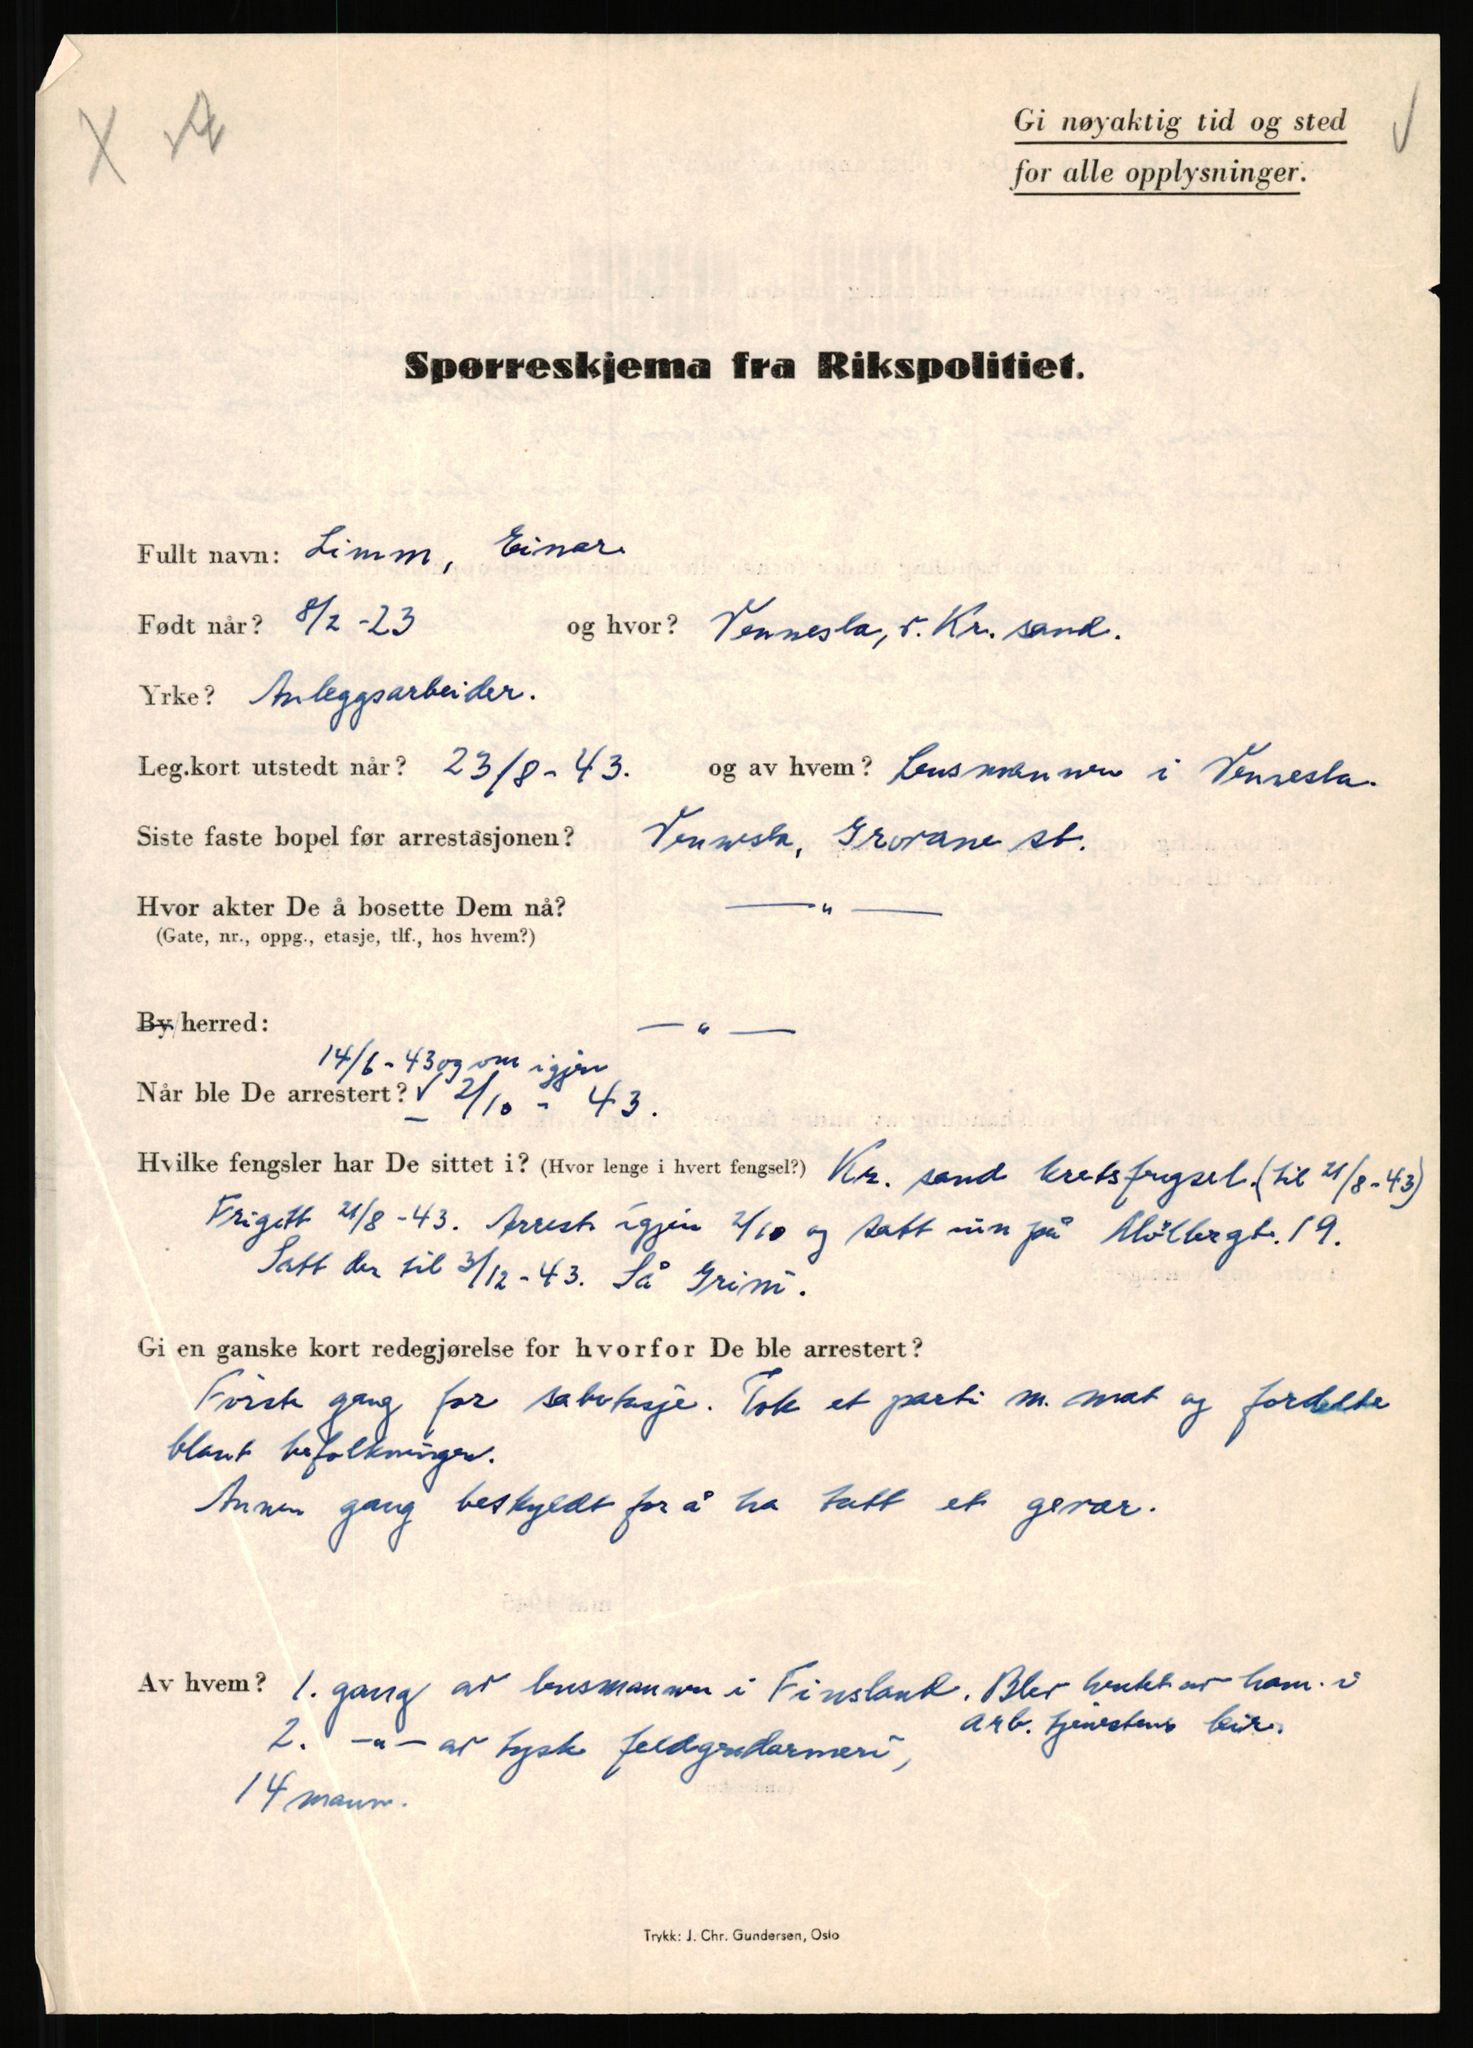 Gi nøyaktig tid og sted
for alle opplysninger.
Spørreskjema fra Rikspolitiet.
Fullt navn: Limm, Einar
Født når? 8/2 - 23 og hvor? Vennesla, v. Kr. sand.
Yrke? Anleggsarbeider.
Leg.kort utstedt når? 23/8 - 43. og av hvem? Lensmannen i Vennesla.
Siste faste bopel før arrestasjonen? Vennesla, Grovane st.
Hvor akter De å bosette Dem nå? — " —
(Gate, nr., oppg., etasje, tlf., hos hvem?)
By/herred: — " —
14/6 - 43 og om igjen
Når ble De arrestert? 2/10 - 43.
Hvilke fengsler har De sittet i? (Hvor lenge i hvert fengsel?) Kr. sand kretsfengsel. (til 21/8 - 43)
Frigitt 21/8 - 43. Arrest. igjen 2/10 og satt inn på Møllergt. 19.
Satt der til 3/12 - 43. Så Grini.
Gi en ganske kort redegjørelse for hvorfor De ble arrestert?
Første gang for sabotasje. Tok et parti m. mat og fordelte
blant befolkningen.
Annen gang beskyldt for å ha tatt et gevær.
Av hvem? 1. gang av lensmannen i Finsland. Blev hentet av ham i
arb. tjenestens leir.
2. — " — av tysk feldgendarmeri,
14 mann.
Trykk: J. Chr. Gundersen, Oslo